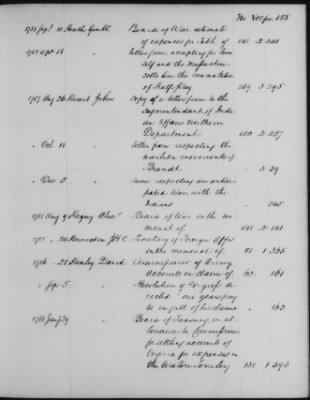 No Vol. Pa. 155
1788 Sep. 11 Heath Genl. Board of War estimate
of expenses for Table of 141 2 241
1783 apr 18 " letter from, accepting for him
self and the Massachu
setts line the commutation
of Half Pay. 149 3 295
1787 Aug 26 Heart John Copy of a letter from to the
Superintendent of Indi
an Affairs Northern
Department 150 2 557
" Oct 14 " letter from respecting the
warlike movements of
Brandt - 3 39
" Dec 5 " same respecting an antici
pated War, with the
Indians - 145
1781 Aug 9 Board of War on the me
morial of 148 2 181
1785 " 20 Secretary of Foreign Affrs
on the memorial of 81 1 365
1786 " 28 Henley David Commissioner of Army
Accounts on claim of 62 161
" Sep 5 " Resolution of Congress di
rected one years pay
to on full of his claims - 163
1788 Jany 29 " Board of Treasury on al
lowance to Commissioner
for settling accounts of
Virginia for expenses in
the Western Territory 138 1 393